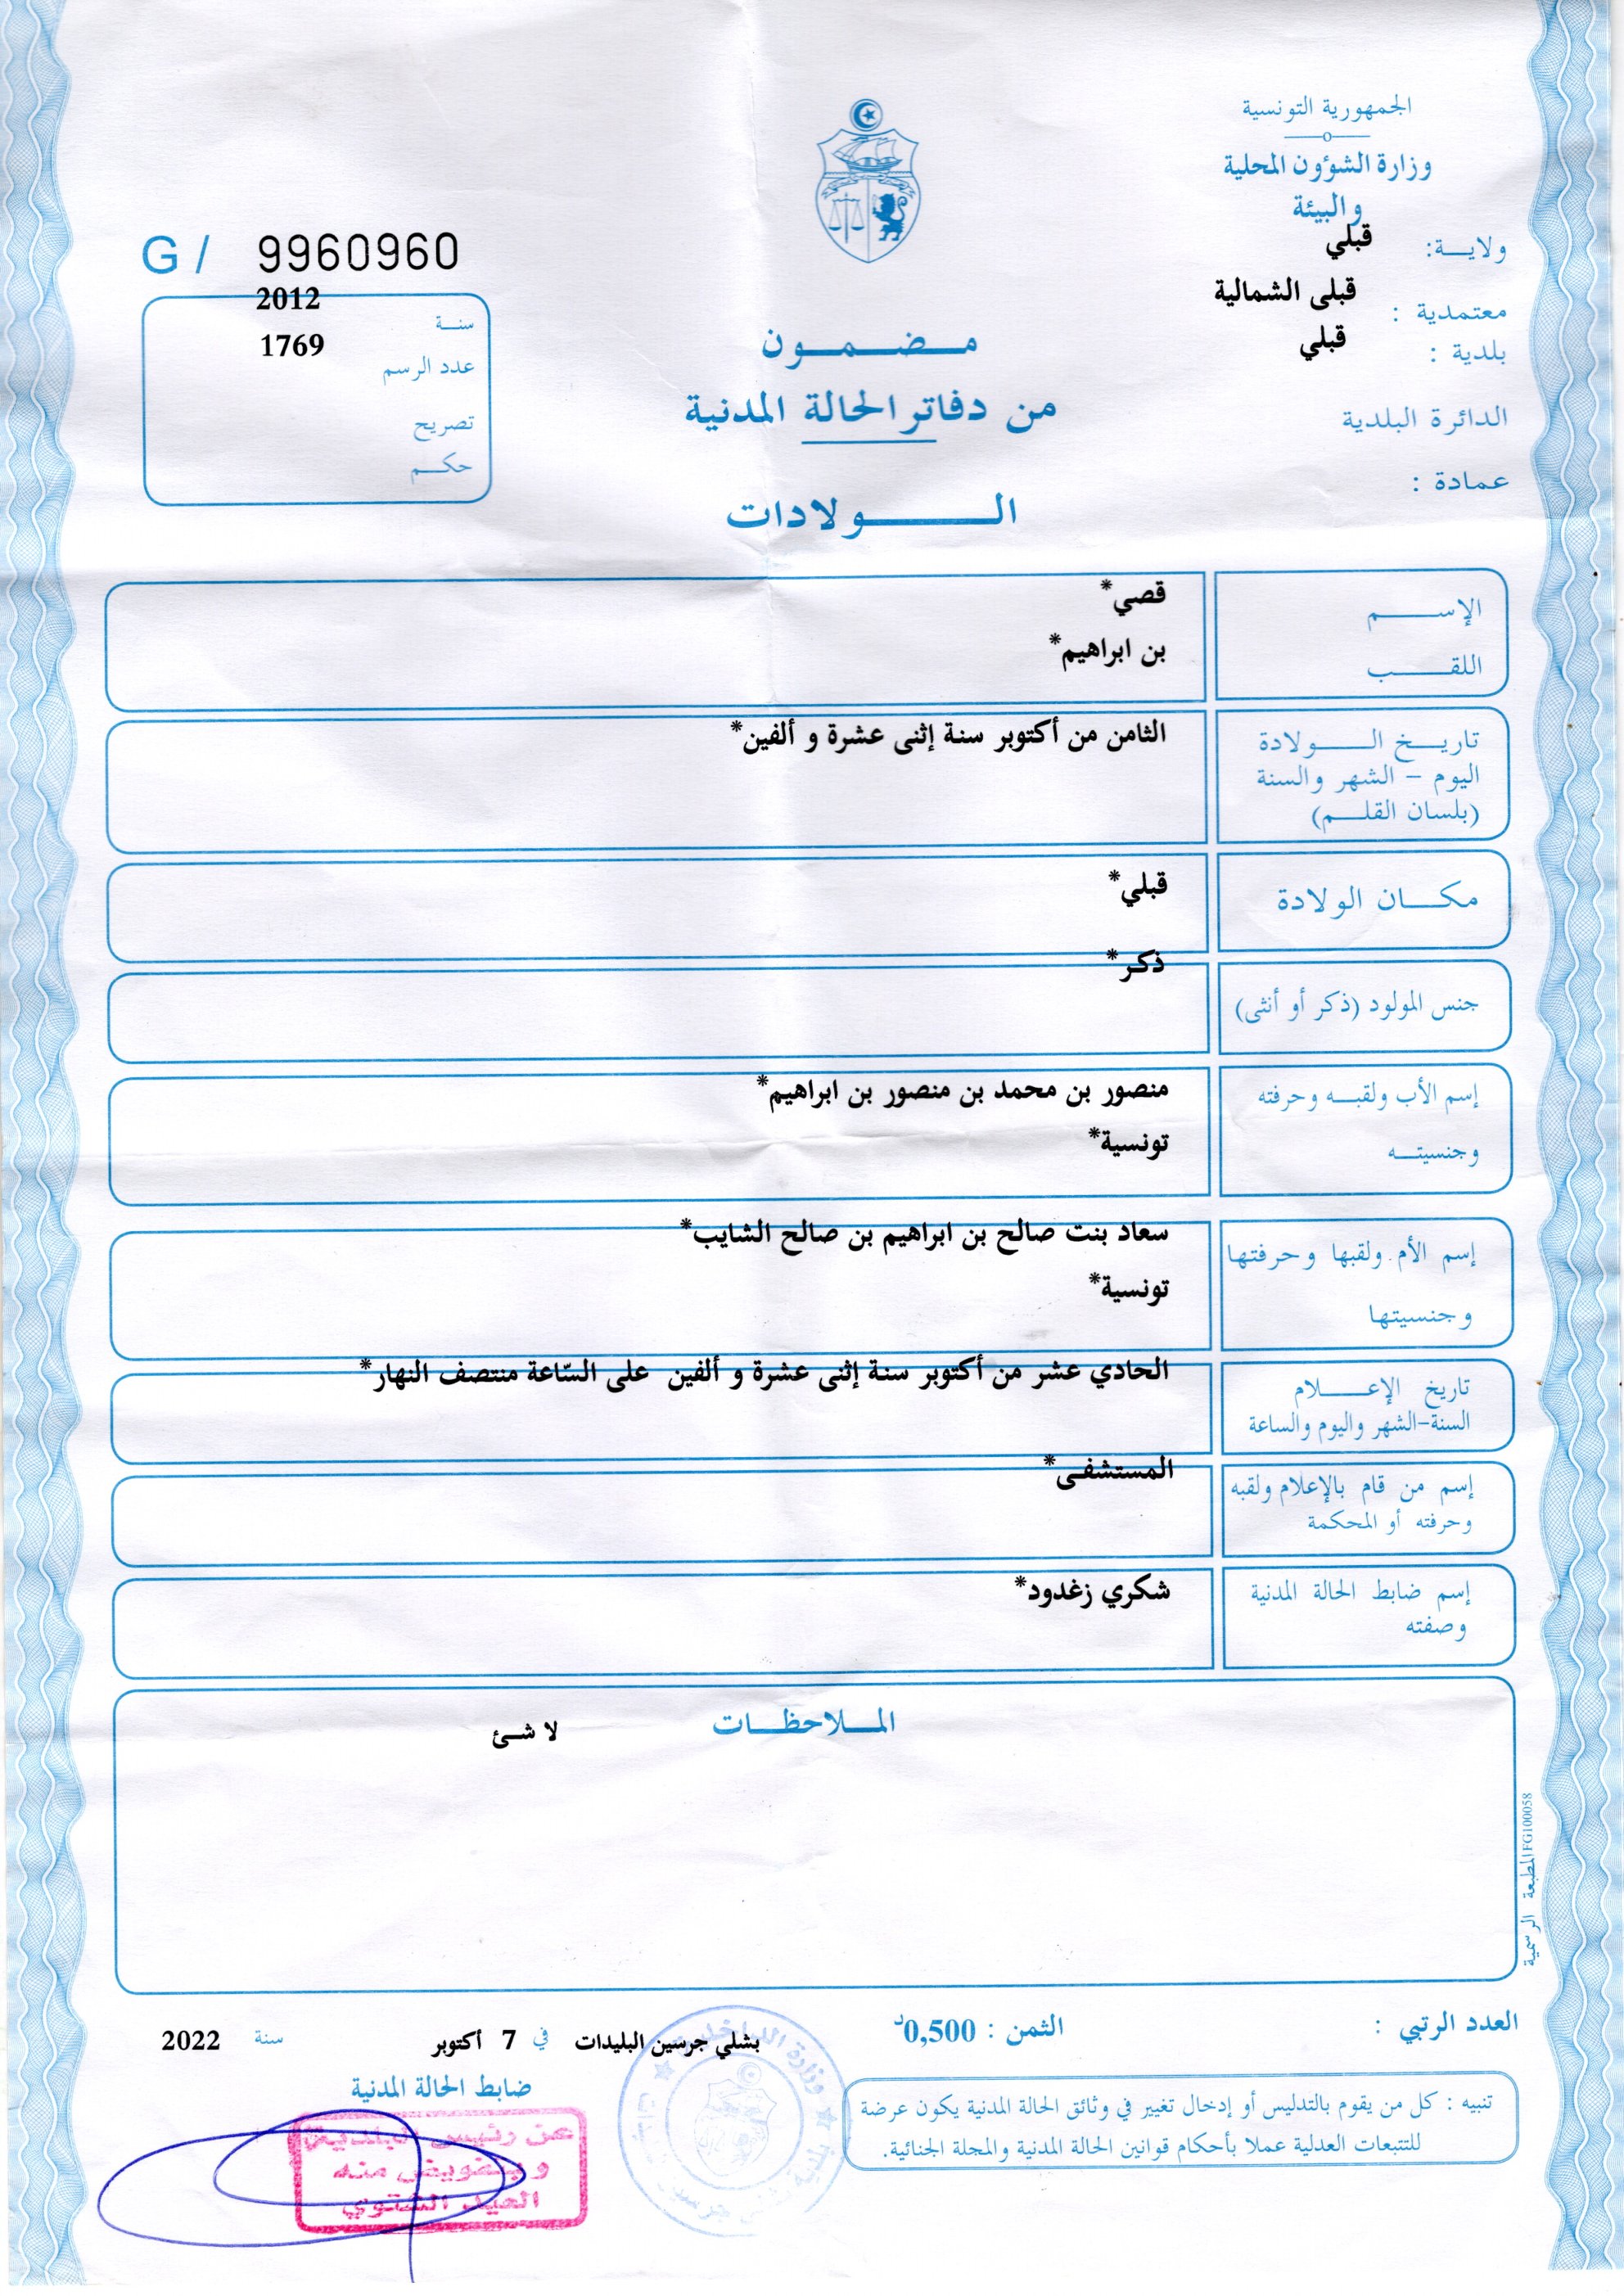 الجمهورية التونسية
وزارة الشؤون المحلية
والبيئة
ولاية: قبلي
معتمدية : قبلى الشمالية
بلدية : قبلي
الدائرة البلدية
عمادة :
G / 9960960
سنة 2012
عدد الرسم 1769
تصريح
حكم
مضمون
من دفاتر الحالة المدنية
الولادات
الإسم قصي*
اللقب بن ابراهيم*
تاريخ الولادة
اليوم - الشهر والسنة
(بلسان القلم)
الثامن من أكتوبر سنة إثنى عشرة و ألفين*
مكان الولادة قبلي*
جنس المولود (ذكر أو أنثى) ذكر*
إسم الأب ولقبه وحرفته
وجنسيته
منصور بن محمد بن منصور بن ابراهيم*
تونسية*
إسم الأم ولقبها وحرفتها
وجنسيتها
سعاد بنت صالح بن ابراهيم بن صالح الشايب*
تونسية*
تاريخ الإعلام
السنة-الشهر واليوم والساعة
الحادي عشر من أكتوبر سنة إثنى عشرة و ألفين على السّاعة منتصف النهار*
إسم من قام بالإعلام ولقبه
وحرفته أو المحكمة
المستشفى*
إسم ضابط الحالة المدنية
وصفته
شكري زغدود*
الملاحظات
لا شئ
المطبعة الرسمية FG100058
العدد الرتبي :
الثمن : 0,500د
بشلي جرسين البليدات في 7 أكتوبر سنة 2022
ضابط الحالة المدنية
عن رئيس البلدية
وبتفويض منه
العيد الشتوي
تنبيه : كل من يقوم بالتدليس أو إدخال تغيير في وثائق الحالة المدنية يكون عرضة
للتتبعات العدلية عملا بأحكام قوانين الحالة المدنية والمجلة الجنائية.
وزارة الداخلية